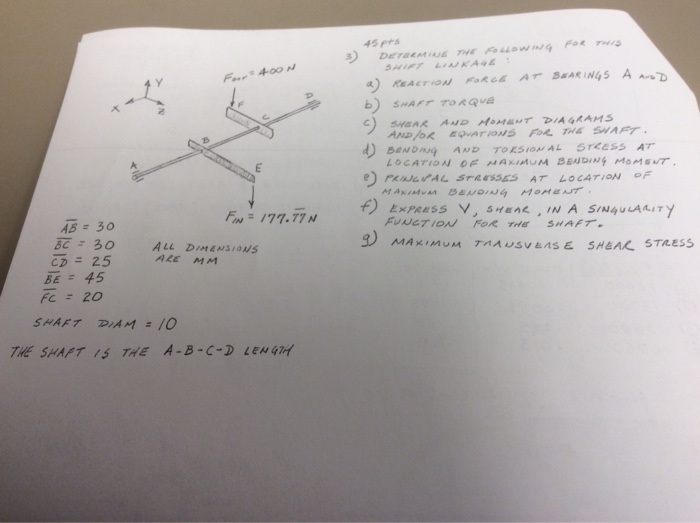 45 pts
3) DETERMINE THE FOLLOWING FOR THIS
SHIFT LINKAGE :
a) REACTION FORCE AT BEARINGS A AND D
b) SHAFT TORQUE
c) SHEAR AND MOMENT DIAGRAMS
AND/OR EQUATIONS FOR THE SHAFT.
d) BENDING AND TORSIONAL STRESS AT
LOCATION OF MAXIMUM BENDING MOMENT.
e) PRINCIPAL STRESSES AT LOCATION OF
MAXIMUM BENDING MOMENT.
f) EXPRESS V, SHEAR, IN A SINGULARITY
FUNCTION FOR THE SHAFT.
g) MAXIMUM TRANSVERSE SHEAR STRESS
Y
X
Z
Fout = 400 N
F
C
D
B
A
E
FIN = 177.77 N
AB = 30
BC = 30
CD = 25
BE = 45
FC = 20
ALL DIMENSIONS
ARE MM
SHAFT DIAM = 10
THE SHAFT IS THE A-B-C-D LENGTH